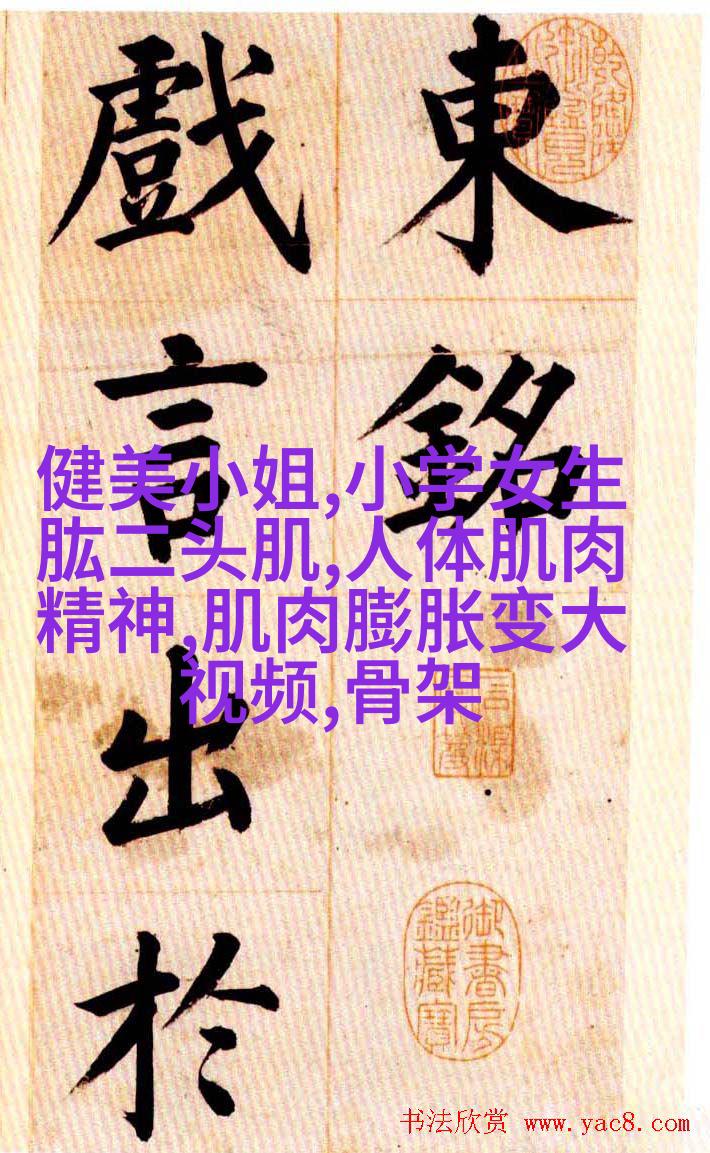 東銘
戲言出於
健美小姐,小学女生
肱二头肌,人体肌肉
精神,肌肉膨胀变大
视频,骨架
御書房
鑑藏寶
书法欣赏 www.yac8.com